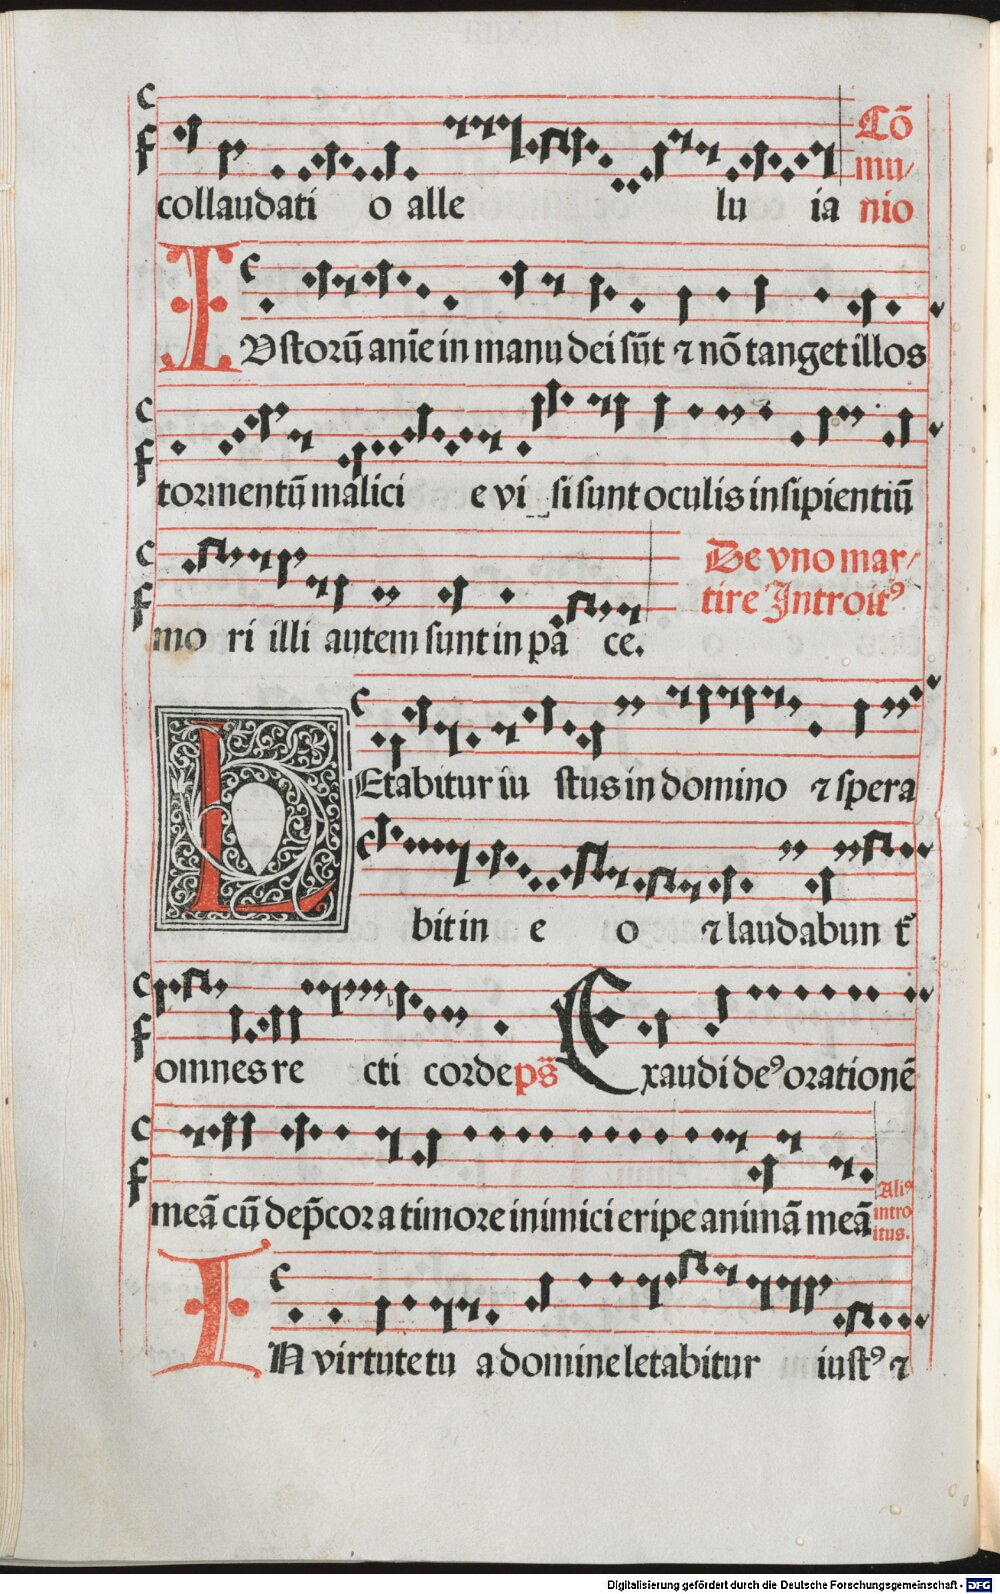 collaudati o alle lu ia
Cō
mu/
nio
IUstorū anīe in manu dei sūt ⁊ nō tanget illos
tormentū malici e vi si sunt oculis insipientiū
mo ri illi autem sunt in pa ce.
De vno mar/
tire Introitꝰ
LEtabitur iu stus in domino ⁊ spera
bit in e o ⁊ laudabunt̄
omnes re cti corde ps̄
Exaudi deꝰ orationē
meā cū dep̄cor a timore inimici eripe animā meā
Aliꝰ
intro
itus.
IN virtute tu a domine letabitur iustꝰ ⁊
Digitalisierung gefördert durch die Deutsche Forschungsgemeinschaft - DFG